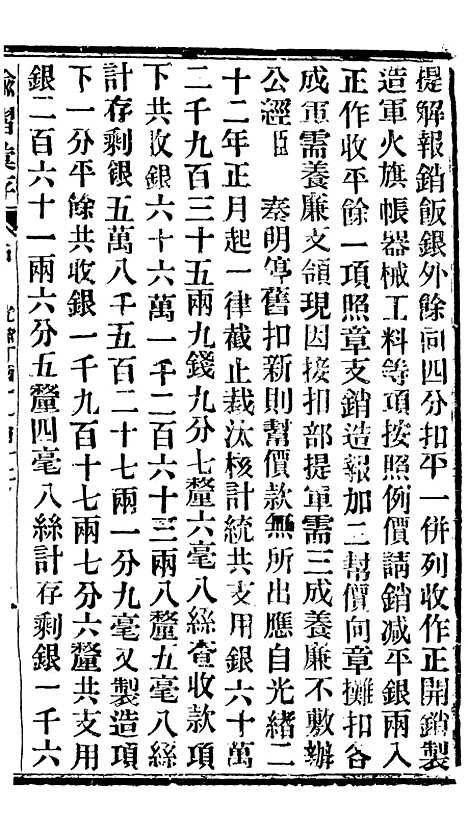 提解報銷飯銀外餘同四分扣平一併列收作正開銷製
造軍火旗帳器械工料等項按照例價請銷减平銀兩入
正作收平餘一項照章支銷造報加二幫價向章攤扣各
成軍需養廉支領現因接扣部提軍需三成養廉不敷辦
公經臣 奏明停舊扣新則幫價款無所出應自光緒二
十二年正月起一律截止裁汰核計統共支用銀六十萬
二千九百三十五兩九錢九分七釐六毫八絲查收款項
下共收銀六十六萬一千二百六十三兩八釐五毫八絲
計存剩銀五萬八千五百二十七兩一分九毫又製造項
下一分平餘共收銀一千九百十七兩七分六釐共支用
銀二百六十一兩六分五釐四毫八絲計存剩銀一千六